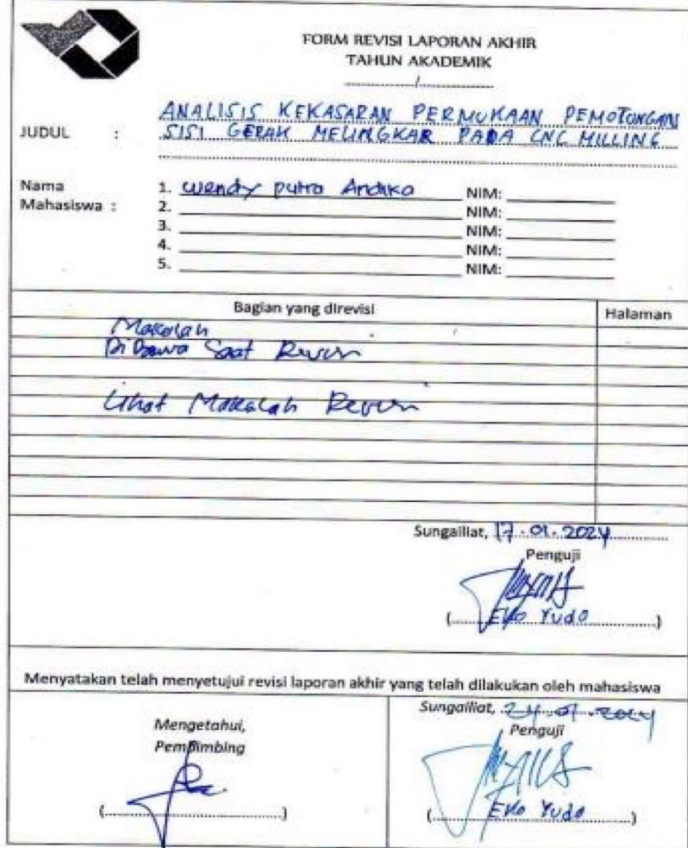 FORM REVISI LAPORAN AKHIR
TAHUN AKADEMIK
............/............
JUDUL : ANALISIS KEKASARAN PERMUKAAN PEMOTONGAN
SISI GERAK MELINGKAR PADA CNC MILLING
Nama
Mahasiswa :
1. Wendy putra Andika NIM:
2. NIM:
3. NIM:
4. NIM:
5. NIM:
Bagian yang direvisi Halaman
Makalah
Di Bawa Saat Revisi
Lihat Makalah Revisi
Sungailiat, 17-01-2024
Penguji
(Eko Yudo)
Menyatakan telah menyetujui revisi laporan akhir yang telah dilakukan oleh mahasiswa
Mengetahui,
Pembimbing
(............)
Sungailiat, 24-01-2024
Penguji
(Eko Yudo)